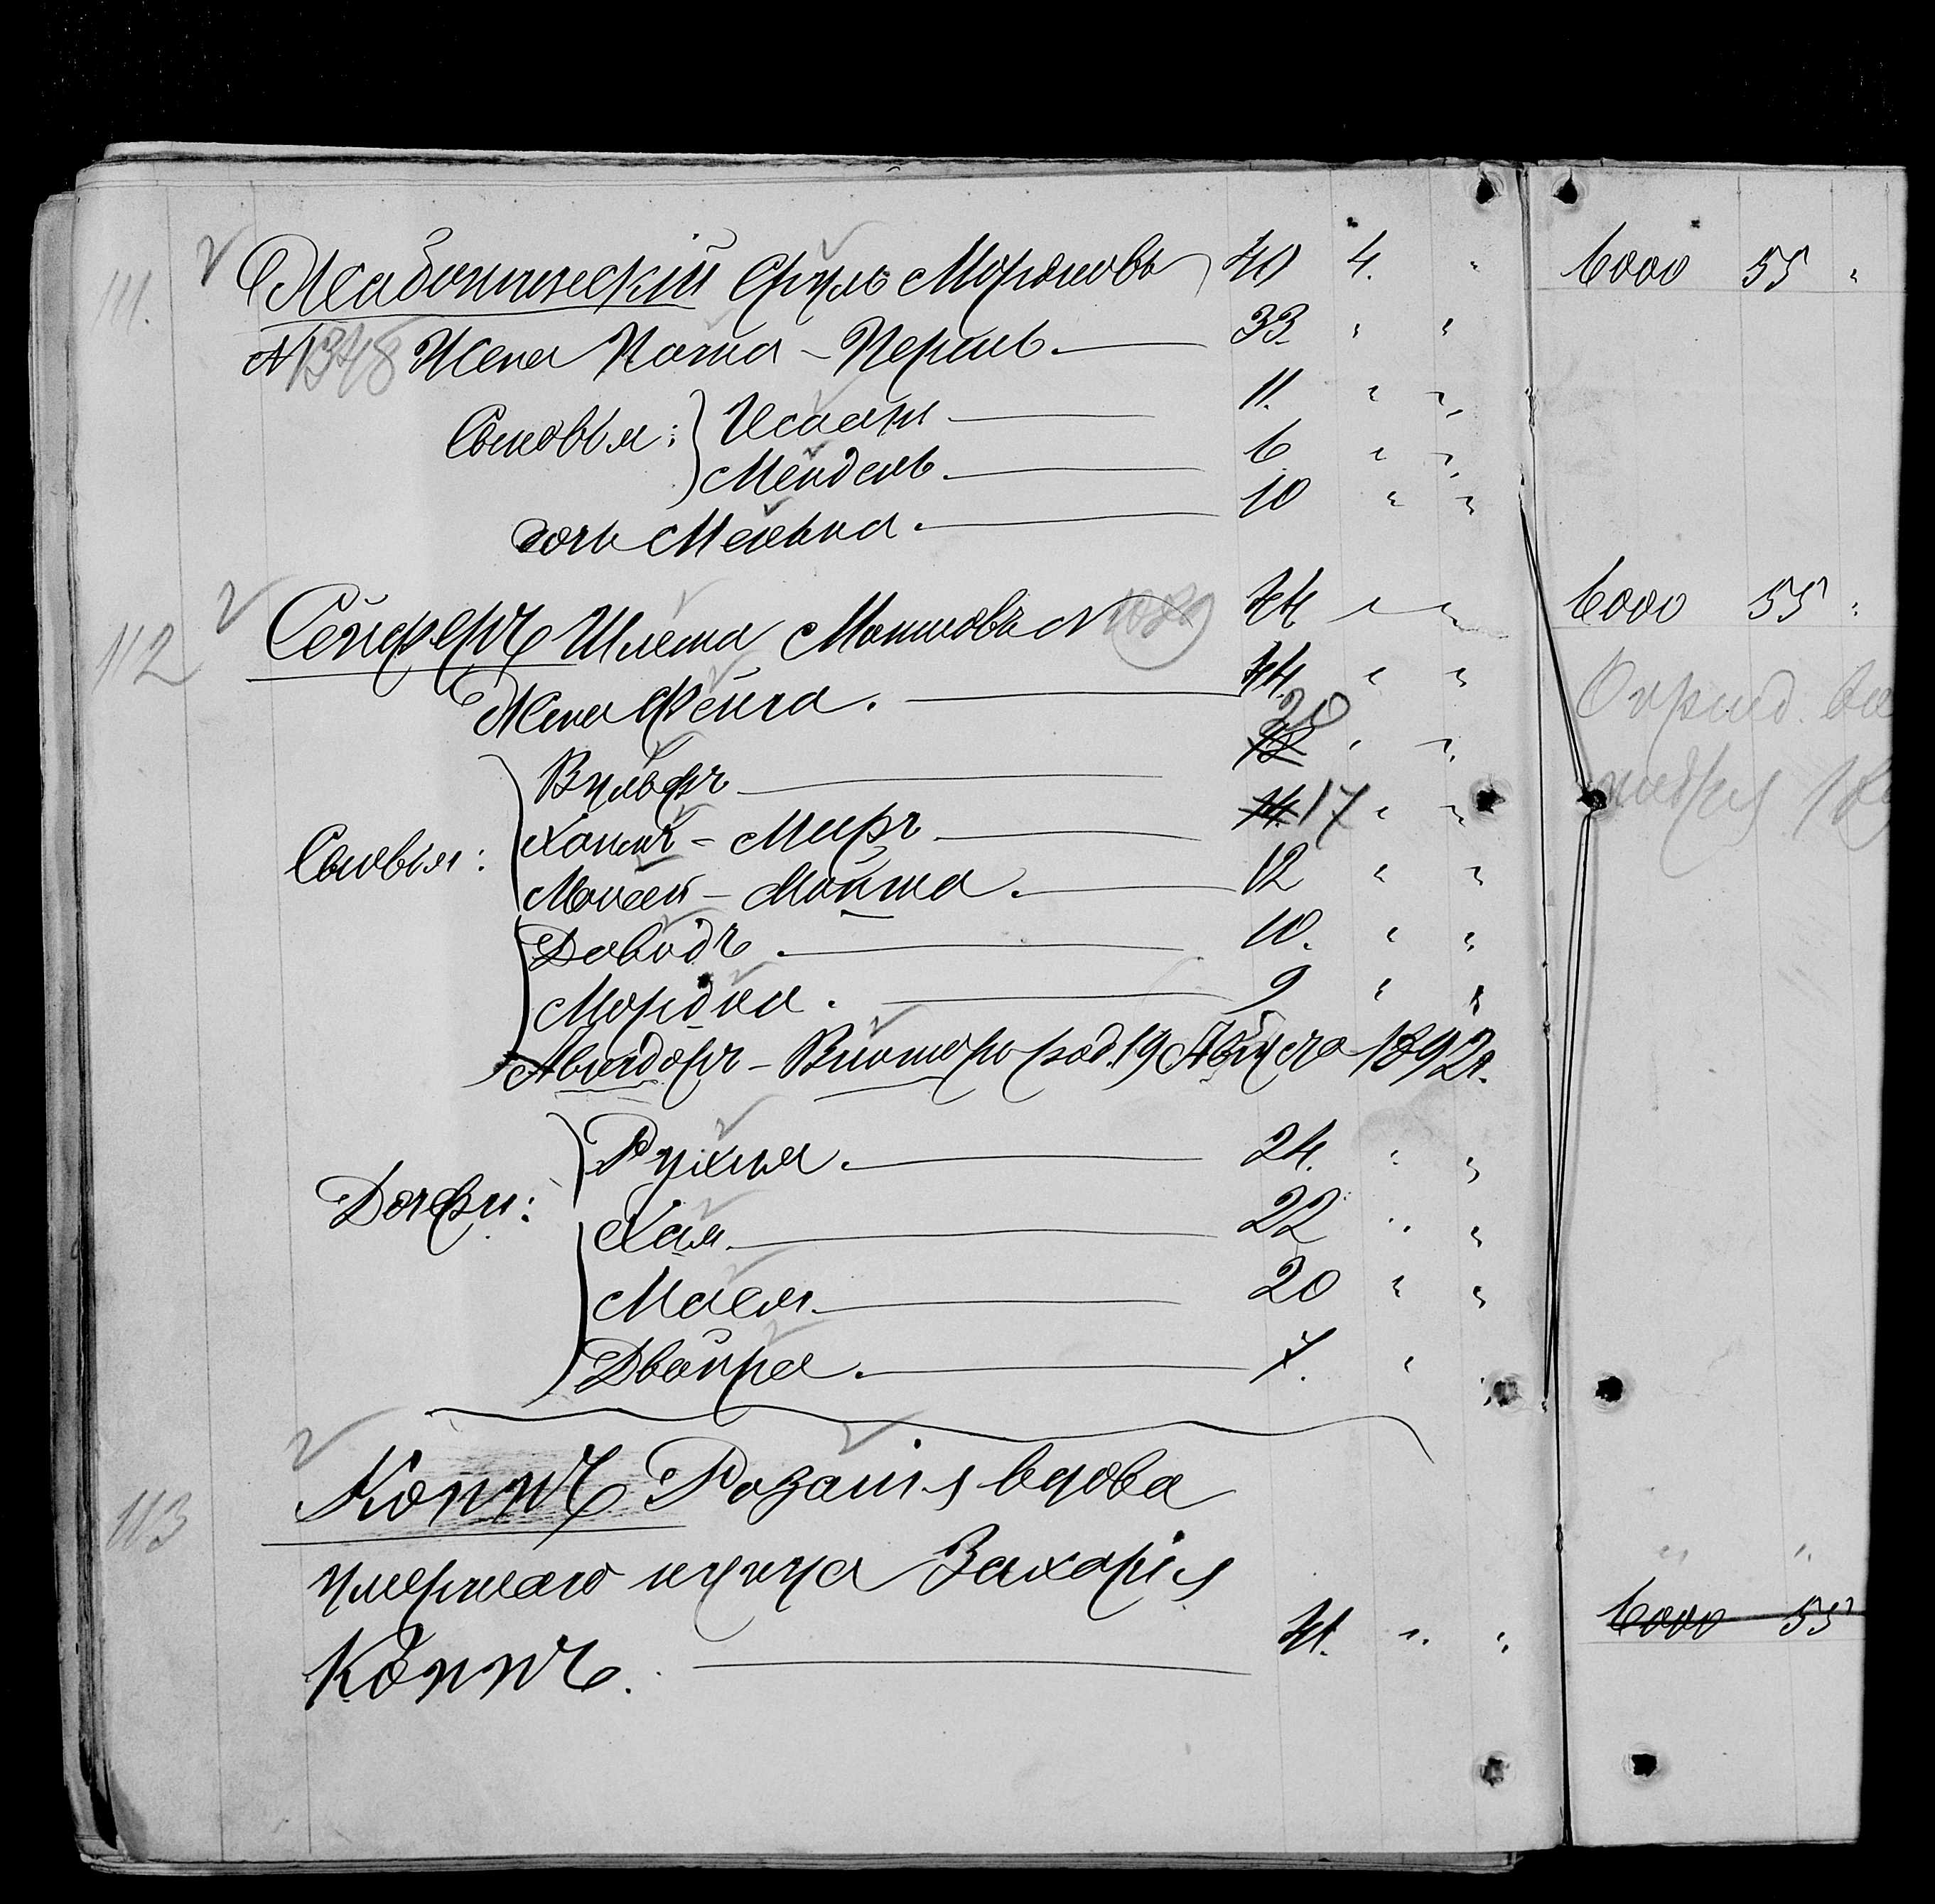 111. Жаботинский Сруль Мордковъ 40 4. " 6000 55 "
№ 1348 Жена Хана-Перль 33 " "
Сыновья: Исаакъ 11. " "
Мендель 6 " "
10 " "
дочь Малька.
112 Сейферъ Шлема Мошковъ № 44 " " 6000 55 "
Жена Фейга. 44. " "
Вульфъ 28 " "
Сыновья: Хаимъ-Меиръ 17 " "
Моисей-Мойша. 12 " "
Давидъ. 10. " "
Мордка. 9 " "
Авигдоръ-Викторъ род. 19 Августа 1892 г.
Дочери: Рухля. 24. " "
Хая 22 " "
Малка 20 " "
Двойра. 7. "
113 Коппъ Розалія вдова
умершаго купца Захарія
Коппъ. 41. " " 6000 55